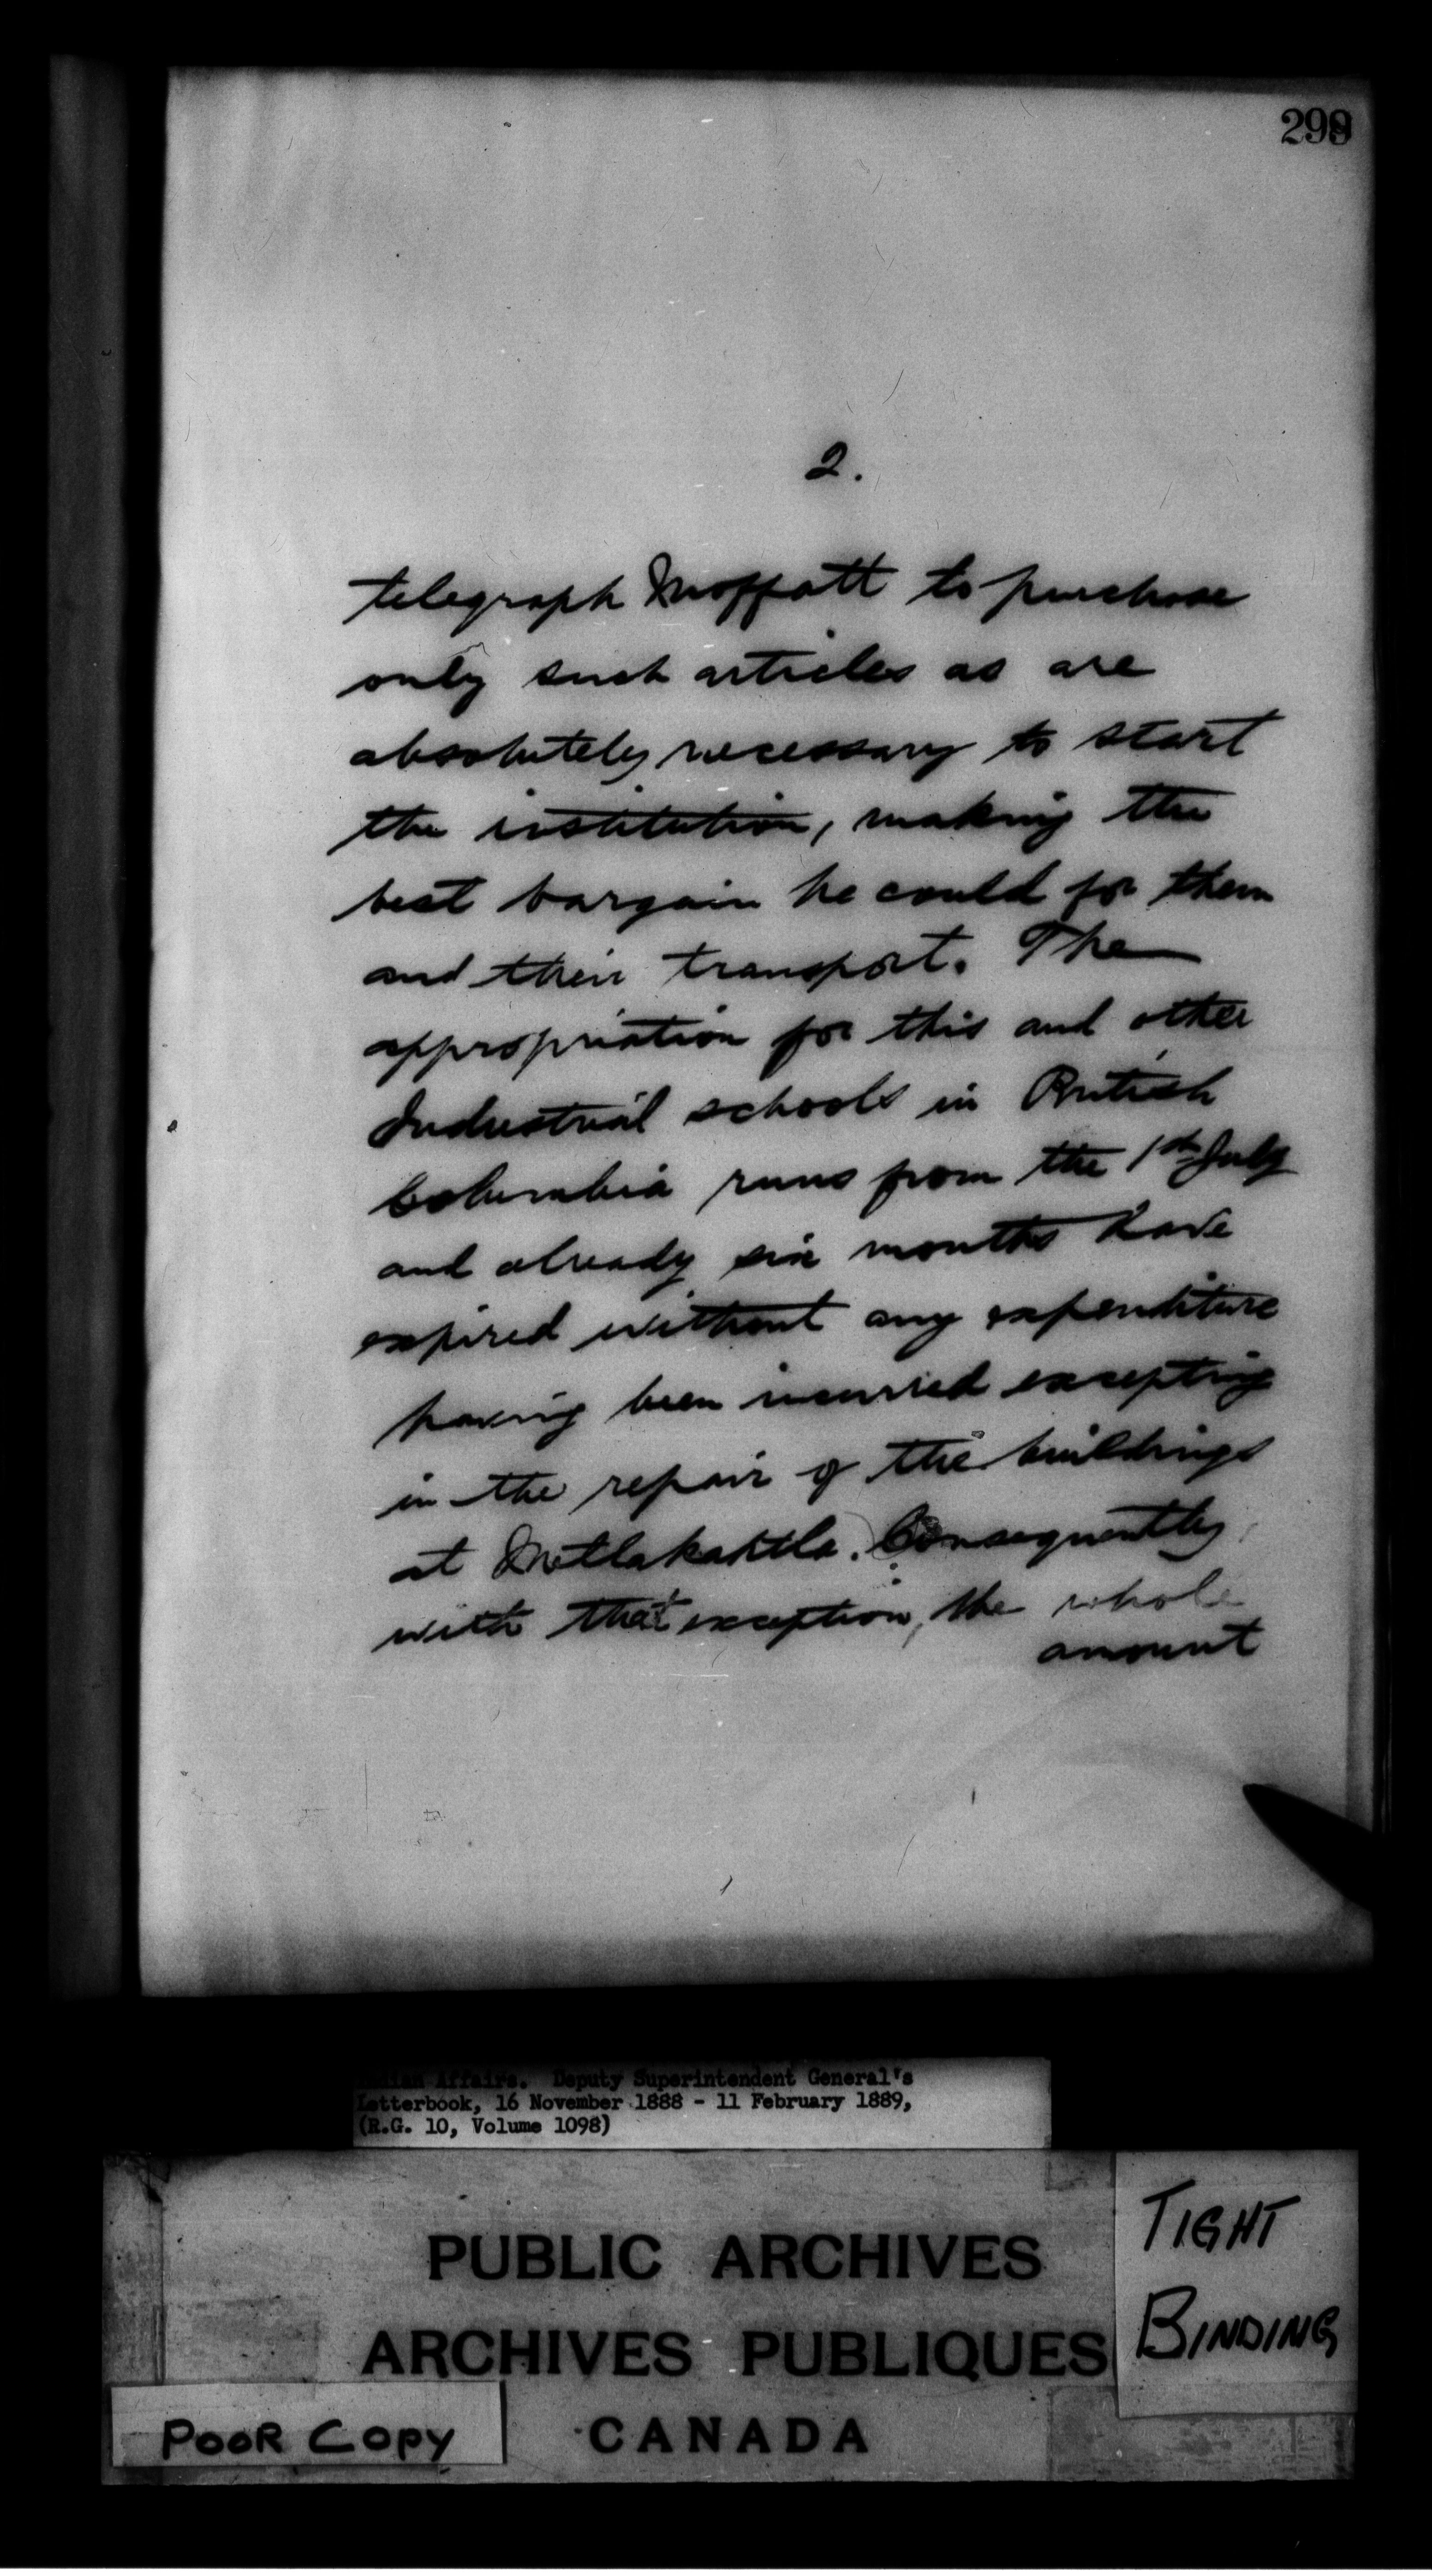 299
2.
telegraph Moffatt to purchase
only such articles as are
absolutely necessary to start
the institution, making the
best bargain he could for them
and their transport. The
appropriation for this and other
Industrial schools in British
Columbia runs from the 1st July
and already six months have
expired without any expenditure
having been incurred excepting
in the repair of the buildings
at Metlakahtla. Consequently,
with that exception, the whole
amount
Indian Affairs. Deputy Superintendent General's
Letterbook, 16 November 1888 - 11 February 1889,
(R.G. 10, Volume 1098)
PUBLIC ARCHIVES
ARCHIVES PUBLIQUES
CANADA
TIGHT
BINDING
POOR COPY